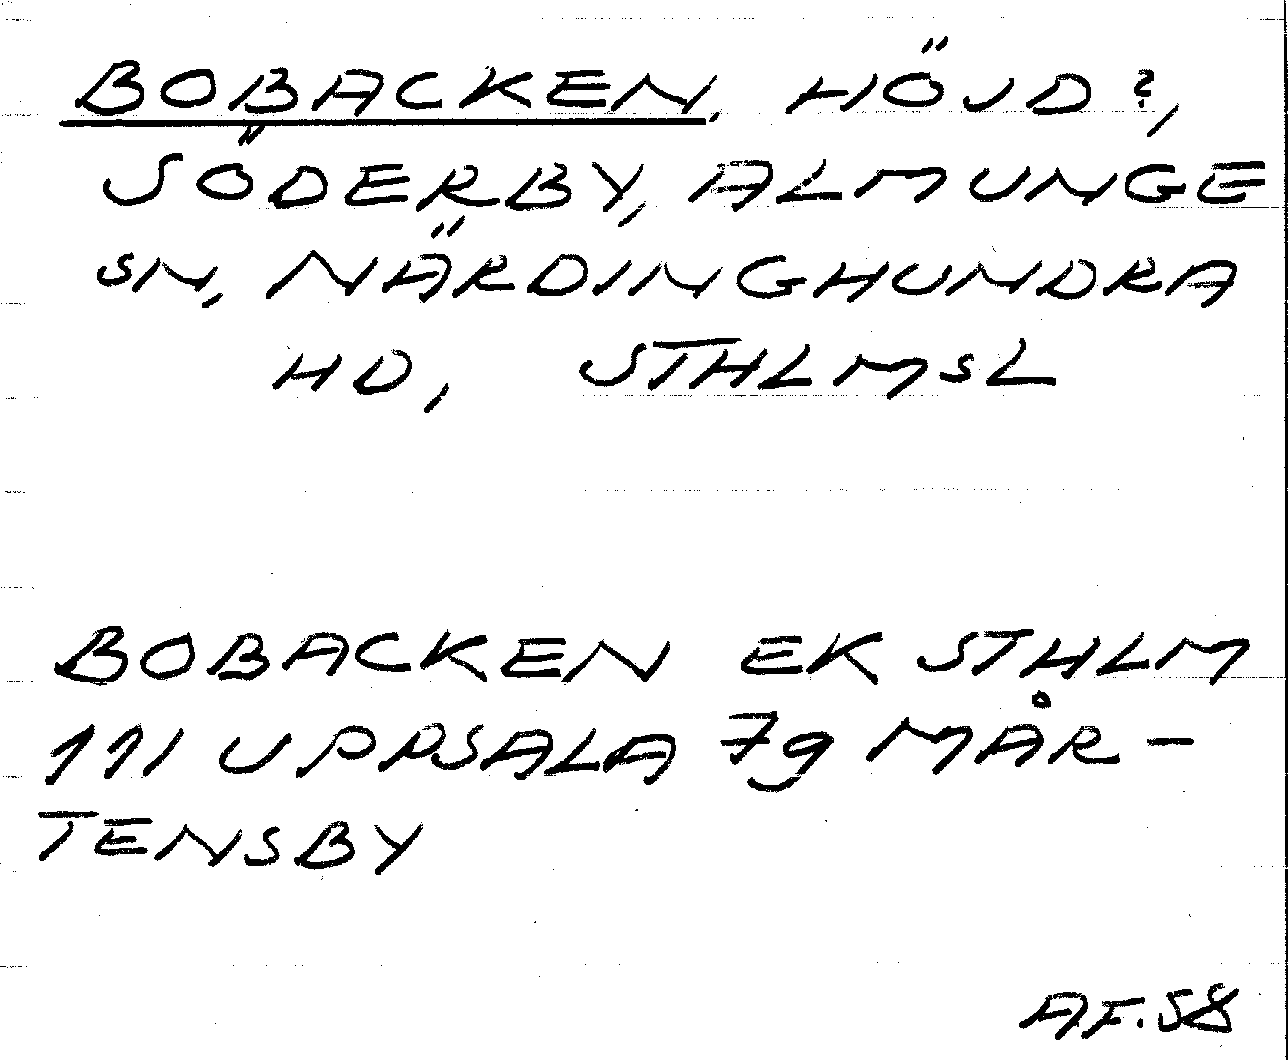 BOBACKEN, HÖJD?,
SÖDERBY, ALMUNGE
SN, NÄRDINGHUNDRA
HD, STHLMSL
BOBACKEN EK STHLM
111 UPPSALA 79 MÅR-
TENSBY
AF.58